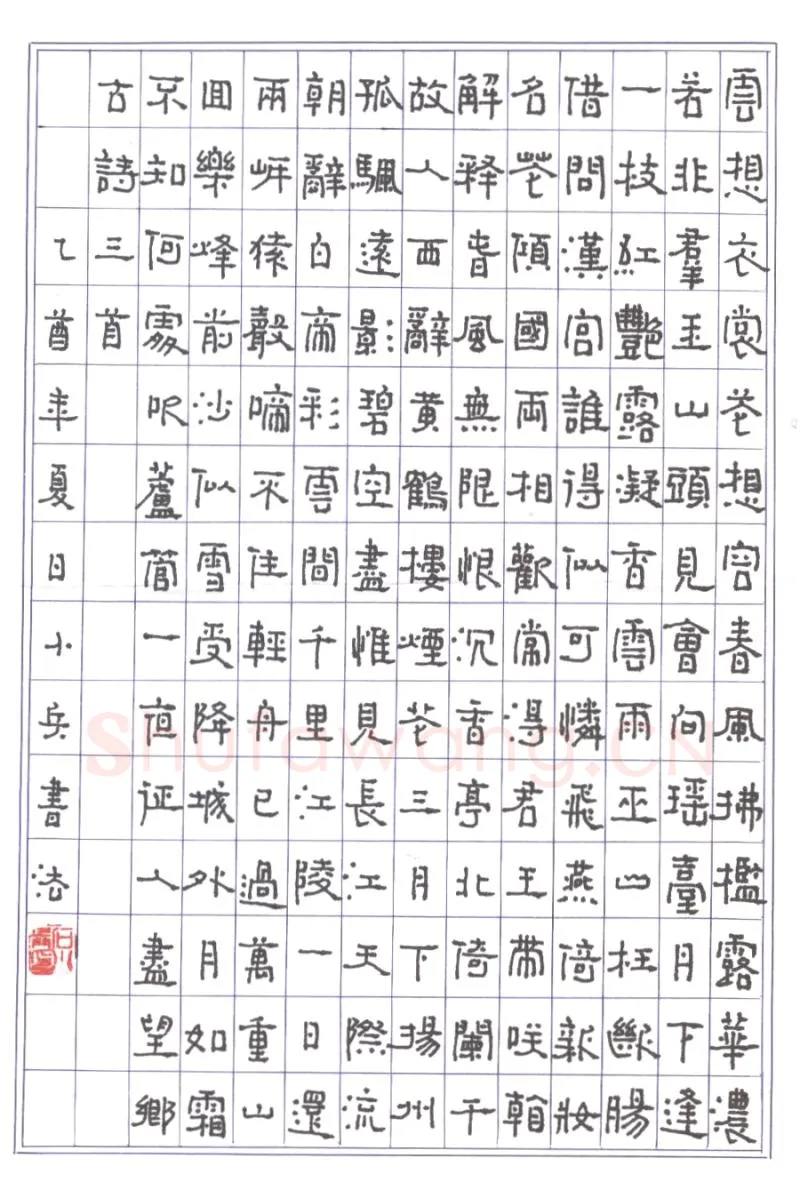 雲想衣裳花想容春風拂檻露華濃
若非羣玉山頭見會向瑤臺月下逢
一技紅豔露凝香雲雨巫山枉斷腸
借問漢宫誰得似可憐飛燕倚新妝
名花傾國兩相歡常得君王帶咲看
解释春風無限恨沉香亭北倚闌干
故人西辭黄鶴樓煙花三月下揚州
孤颿遠影碧空盡惟見長江天際流
朝辭白帝彩雲間千里江陵一日還
兩岸猿聲啼不住輕舟已過萬重山
囬樂峰前沙似雪受降城外月如霜
不知何處吹蘆管一夜征人盡望鄉
古詩三首
乙酉年夏日小兵書法
shufawang.CN